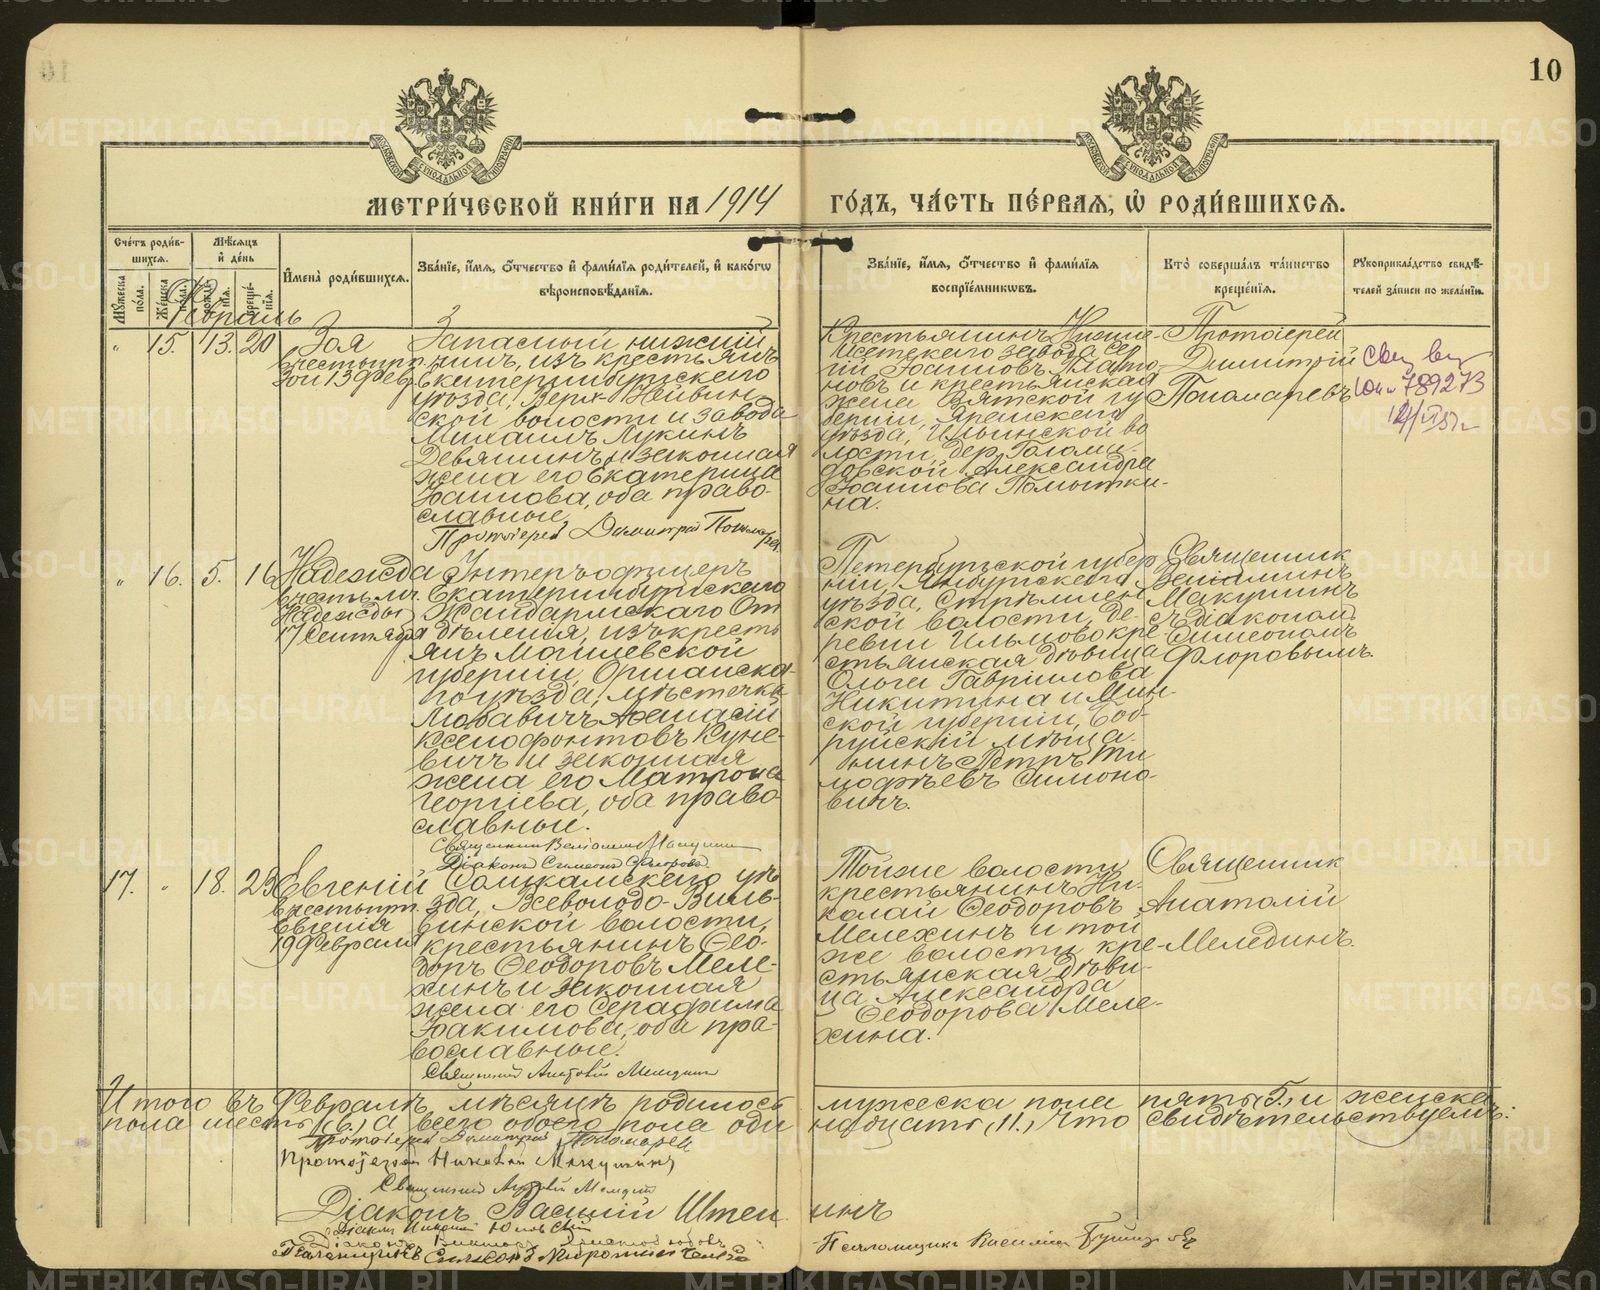 10
МОСКОВСКОЙ СѴНОДАЛЬНОЙ ТИПОГРАФІИ
МОСКОВСКОЙ СѴНОДАЛЬНОЙ ТИПОГРАФІИ
МЕТРИ́ЧЕСКОЙ КНИ́ГИ НА 1914 ГО́ДЪ, ЧА́СТЬ ПЕ́РВАЯ, Ѽ РОДИ́ВШИХСЯ.
Сче́тъ роди́в-
шихся.
Му́жеска пола.
Же́нска пола.
Мѣсяцъ и҆ де́нь
рожде́-
нія.
креще́-
нія.
И҆мена̀ роди́вшихся.
Зва́ніе, и҆́мя, ѻ҆́тчество и҆ фами́лія роди́телей, и҆ како́гѡ
вѣроисповѣ́данія.
Зва́ніе, и҆́мя, ѻ҆́тчество и҆ фами́лія
воспріе́мникѡвъ.
Кто̀ соверша́лъ та́инство
креще́нія.
Рꙋкоприкла́дство свидѣ́-
телей за́писи по жела́нію.
Февраль
" 15. 13. 20
Зоя
въ честь прп.
Зои 13 Фев.
Запасный нижній
чинъ, изъ крестьянъ
Екатеринбургскаго
уѣзда, Верх-Нейвин-
ской волости и завода
Михаилъ Лукинъ
Девяшинъ и законная
жена его Екатерина
Іоаннова, оба право-
славные.
Протоіерей Димитрій Пономаревъ
Крестьянинъ Нижне-
Исетскаго завода Се-
гій Іоанновъ Плато-
новъ и крестьянская
жена Вятской гу-
берніи, Яранскаго
уѣзда, Ильинской во-
лости, дер.
Александра
Іоаннова Помытки-
на.
Протоіерей
Димитрій
Пономаревъ
789273
" 16. 5. 16
Надежда
въ честь мч.
Надежды
17 Сентября
Унтеръ-офицеръ
Екатеринбургскаго
Жандармскаго От
дѣленія, изъ кресть
янъ Могилевской
губерніи, Оршанска-
го уѣзда, мѣстечка
Любавичъ Афанасій
Ксенофонтовъ Куне-
вичъ и законная
жена его Матрона
Георгіева, оба право-
славные.
Священникъ Веніаминъ Макушинъ
Діаконъ Симеонъ Флоровъ
Петербургской губер
ніи, Ямбургскаго
уѣзда, Стрѣлнен
ской волости, де-
ревни Ильмово кре-
стьянская дѣвица
Ольга Гавріилова
Никитина и Мин-
ской губерніи, Боб-
руйскій мѣща-
нинъ Петръ Ти
мофѣевъ Симоно-
вичъ.
Священник
Веніаминъ
Макушинъ
съ діакономъ
Симеономъ
Флоровымъ.
17. " 18. 23
Евгеній
въ честь прп.
Евгенія
19 Февраля
Соликамскаго уѣ
зда, Всеволодо-Виль-
винской волости,
крестьянинъ Ѳео-
доръ Ѳеодоровъ Меле-
хинъ и законная
жена его Серафима
Іоакимова, оба пра-
вославные.
Священникъ Анатолій Мелединъ
Той же волости
крестьянинъ Ни-
колай Ѳеодоровъ
Мелехинъ и той
же волости кре-
стьянская дѣви-
ца Александра
Ѳеодорова Меле-
хина.
Священник
Анатолій
Мелединъ.
Итого въ Февралѣ мѣсяцѣ родилось мужеска пола пять (5.) и женска
пола шесть (6.) А всего обоего пола оди надцать (11.) Что свидѣтельствуемъ:
Протоіерей Димитрій Пономаревъ
Протоіерей Николай Макушинъ
Священникъ Анатолій Мелединъ
Діаконъ Василій Штен нинъ
Псаломщикъ